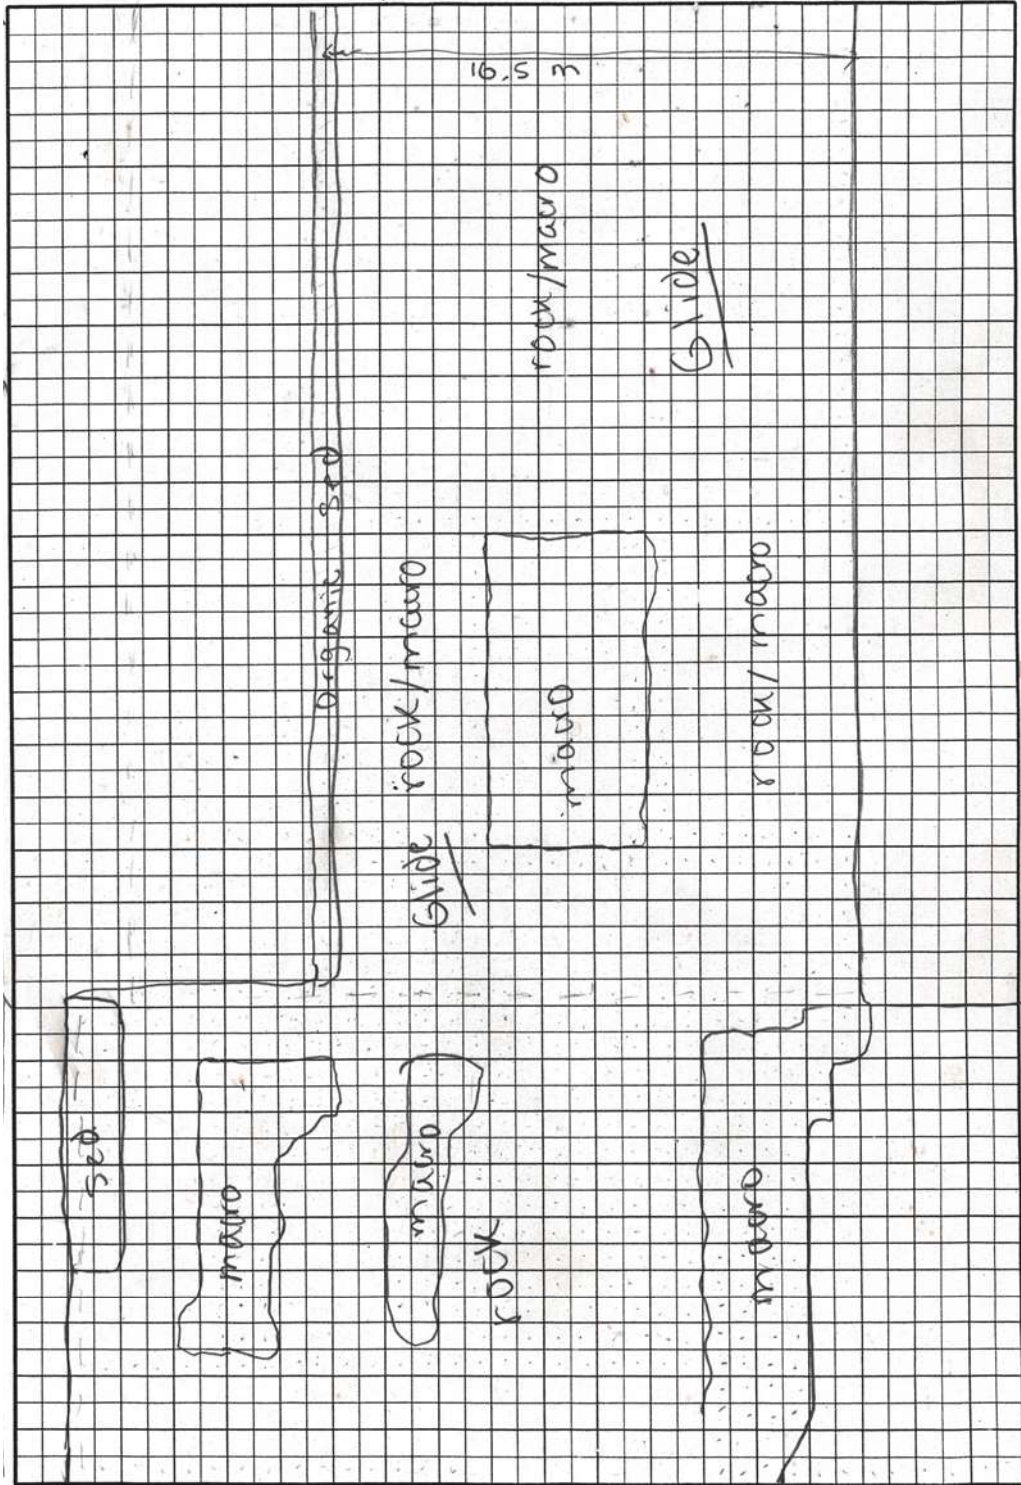 16.5 m
rock/macro
Glide
organic sed
rock/macro
macro
rock/macro
Glide
sed
macro
macro
rock
macro